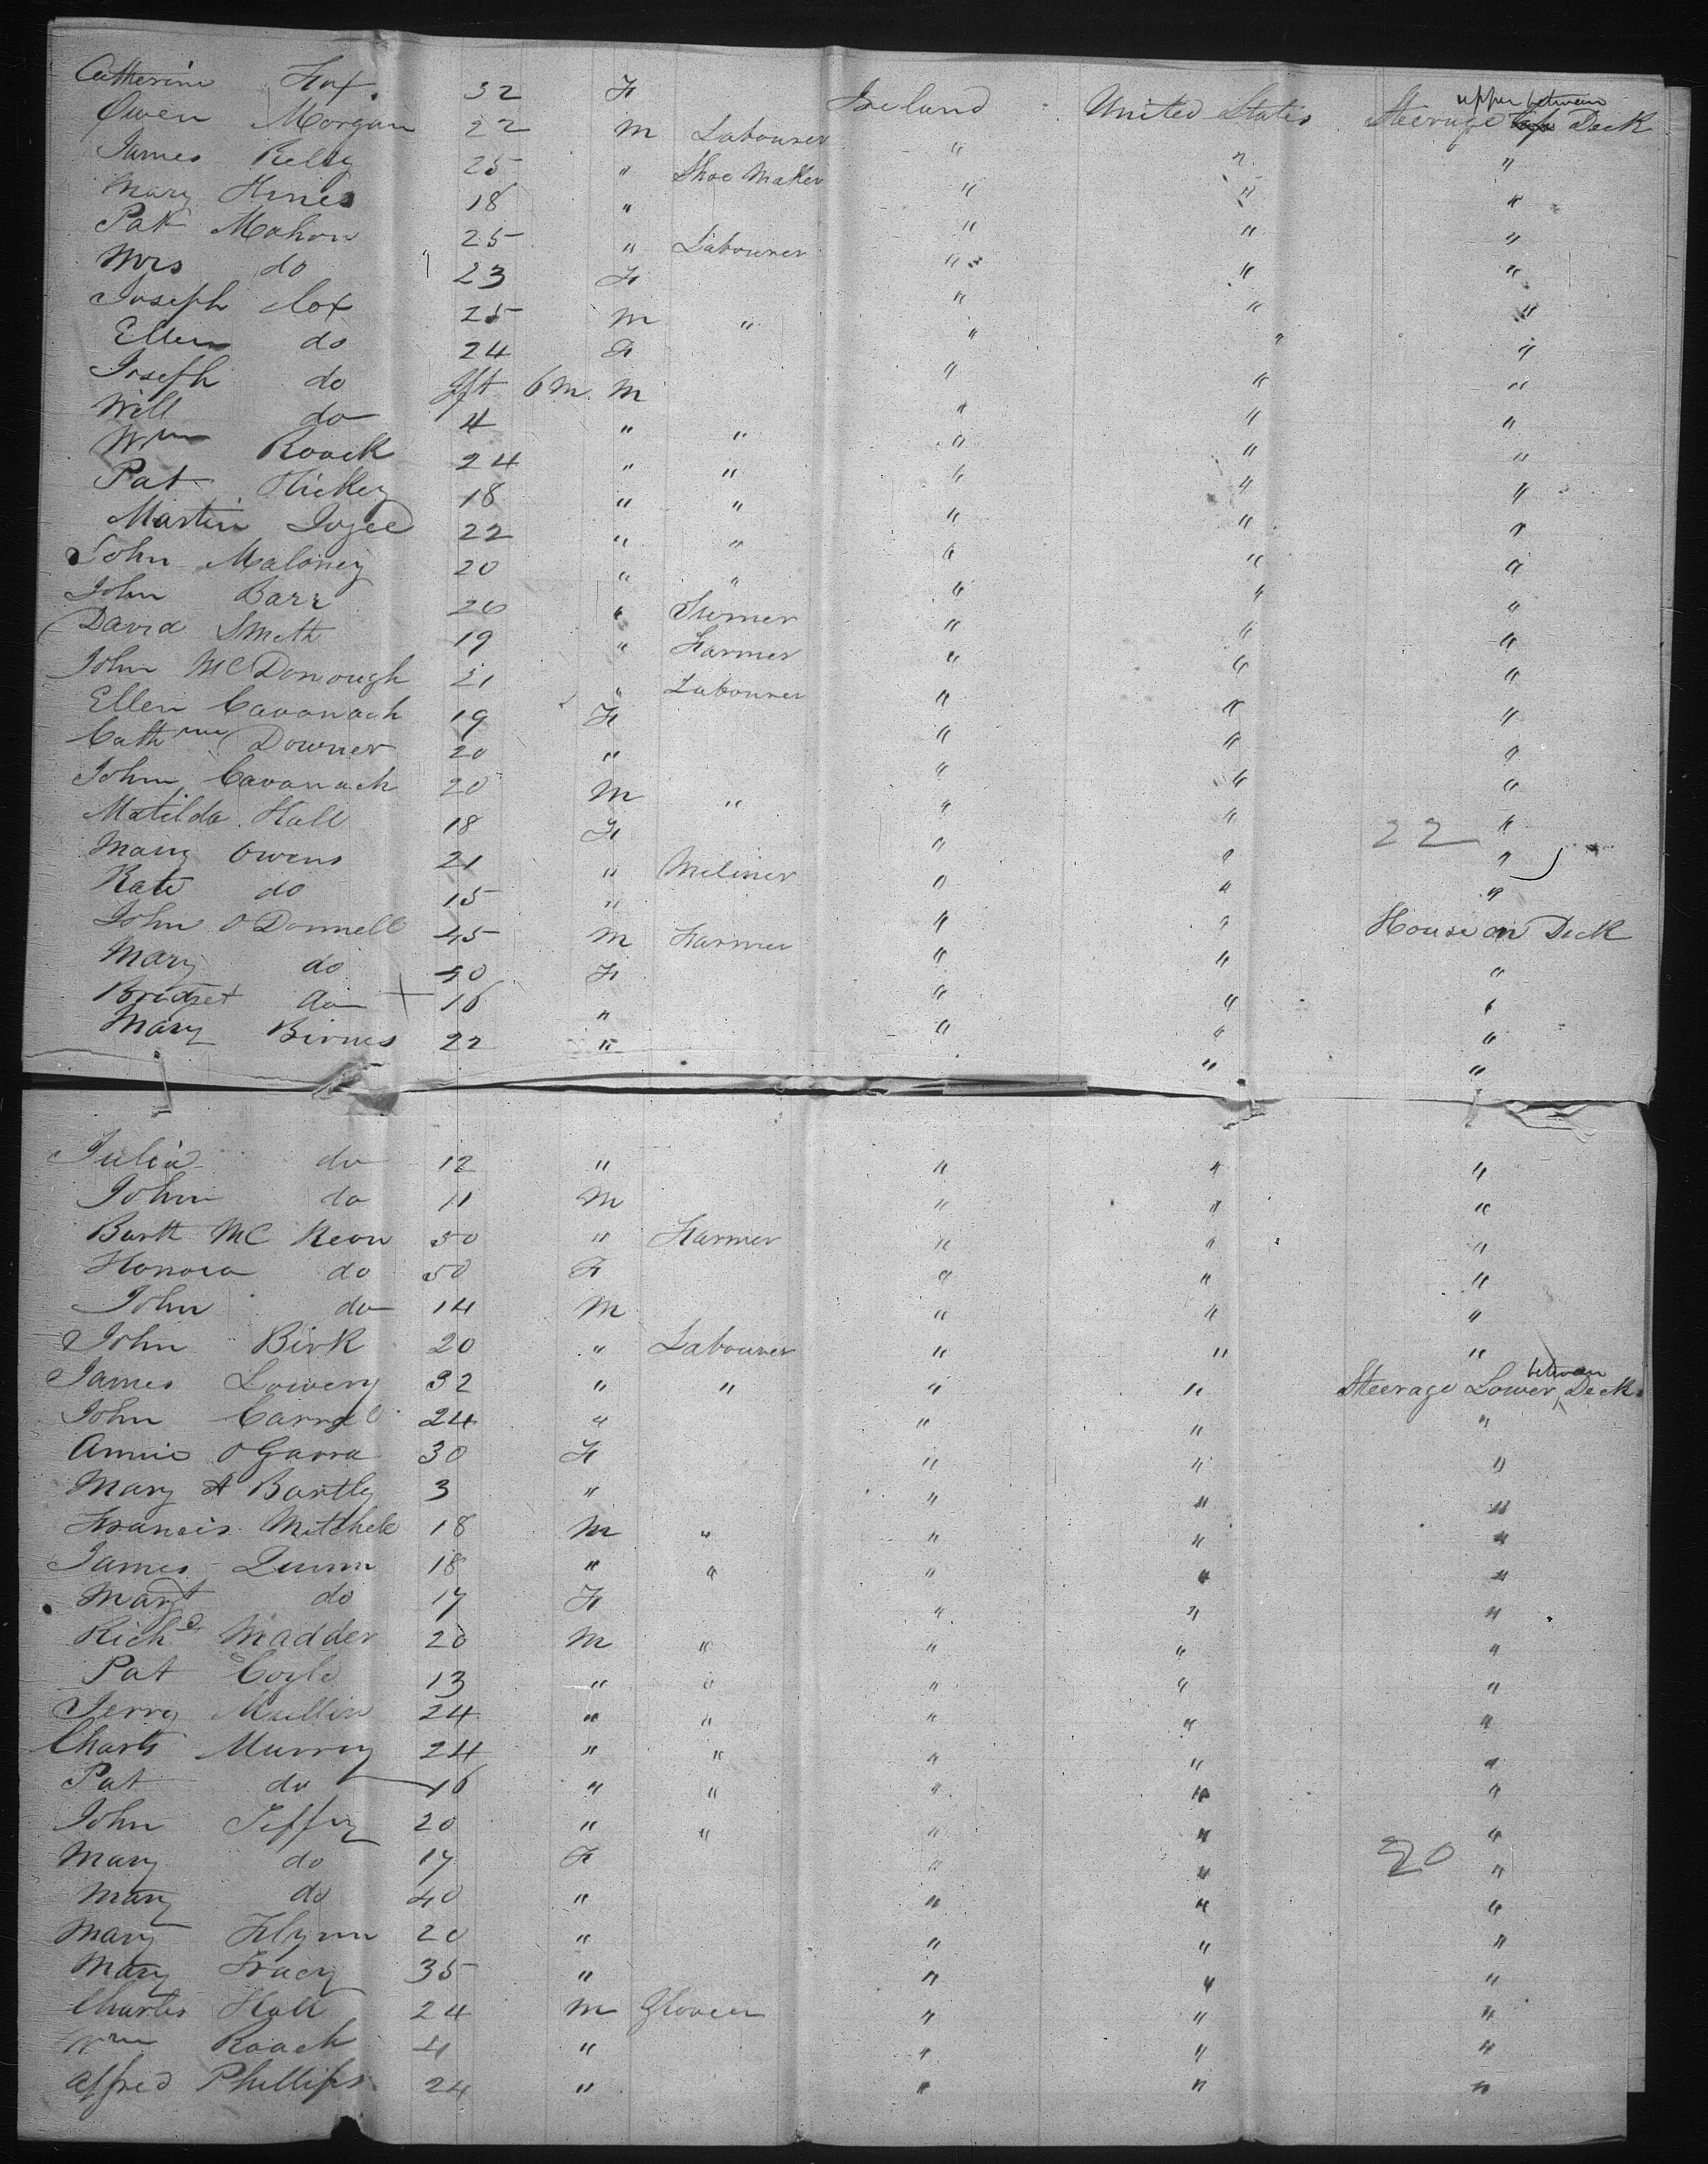 Catherine Fox 32 F Ireland United States Steerage upper between Deck
Owen Morgan 22 M Labourer " " "
James Reley 25 " Shoe Maker " " "
Mary Hines 18 " " " "
Pat Mahon 25 " Labourer " " "
Mrs do 23 F " " "
Joseph Cox 25 M " " " "
Ellen do 24 F " " "
Joseph do Jft 6 M. M " " "
Will do 4 " " " " "
Wm Roack 24 " " " " "
Pat Hickey 18 " " " " "
Martin Joyce 22 " " " " "
John Maloney 20 " " " " "
John Barr 20 " " " "
David Smith 19 " Farmer " " "
John McDonough 21 " Labourer " " "
Ellen Cavanach 19 F " " "
Cathrine Downer 20 " " " "
John Cavanach 20 M " " " "
Matilda Hall 18 F " " 22 "
Mary Owens 21 " Meliner " " "
Kate do 15 " " " "
John O Donnell 45 M Farmer " " House on Deck
Mary do 40 F " " "
Bridget do 16 " " " "
Mary Birnes 22 " " "
Julia do 12 " " " "
John do 11 M " " "
Bartt Mc Keon 50 " Farmer " " "
Honora do 50 F " " "
John do 14 M " " "
John Birk 20 " Labourer " " "
James Lowery 32 " " " " Steerage Lower between Deck
John Carrol 24 " " " "
Annie O Garra 30 F " " "
Mary A Bartly 3 " " " "
Francis Mitchell 18 M " " " "
James Quinn 18 " " " " "
Margt do 17 F " " "
Richd Madder 20 M " " " "
Pat Coyle 13 " " " " "
Jerry Mullin 24 " " " " "
Charls Murray 24 " " " " "
Pat do 16 " " " " "
John Jeffry 20 " " " " "
Mary do 17 F " " 20 "
Mary do 40 " " " "
Mary Flynn 20 " " " "
Mary Tracy 35 " " " "
Charles Hall 24 M Glover " " "
Wm Roach 4 " " " "
Alfred Phillips 24 " " " "